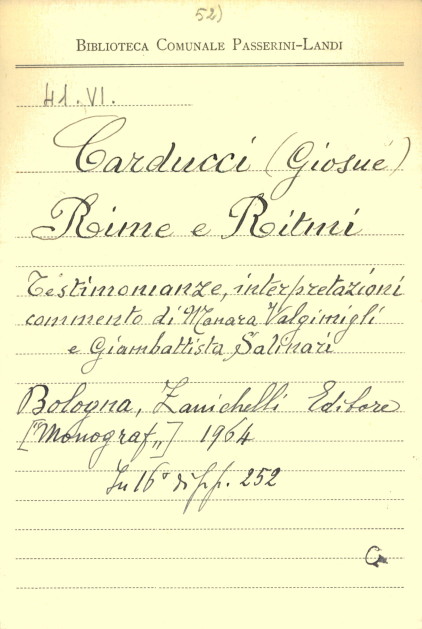 52)
BIBLIOTECA COMUNALE PASSERINI-LANDI
41.VI.
Carducci (Giosué)
Rime e Ritmi
Testimonianze, interpretazioni
commento di Manara Valgimigli
e Giambattista Salinari
Bologna, Zanichelli Editore
["Monograf„] 1964
In 16° di pp. 252